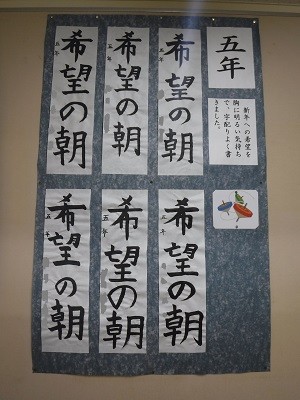 五年
新年への希望を
胸に明るい気持ち
で、字配りよく書
きました。
希望の朝
五年
希望の朝
五年
希望の朝
五年
希望の朝
五年
希望の朝
五年
希望の朝
五年